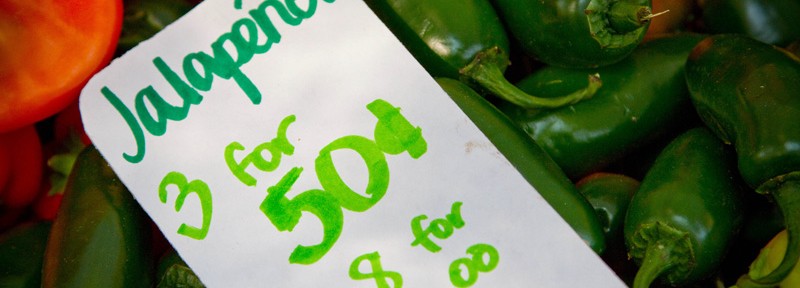 Jalapeño
3 for
50¢
8 for
00